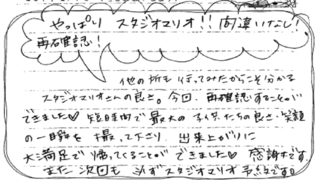 やっぱり スタジオマリオ!! 間違いなし!
再確認!
他の所も行ってみたからこそ分かる
スタジオマリオさんの良さ。今回、再確認することが
できました♡ 短時間で最大の子供たちの良さ・笑顔
の一瞬を撮って下さり 出来上がりに
大満足で帰ってくることができました♡ 感謝です。
また次回も 必ずスタジオマリオ予約です。